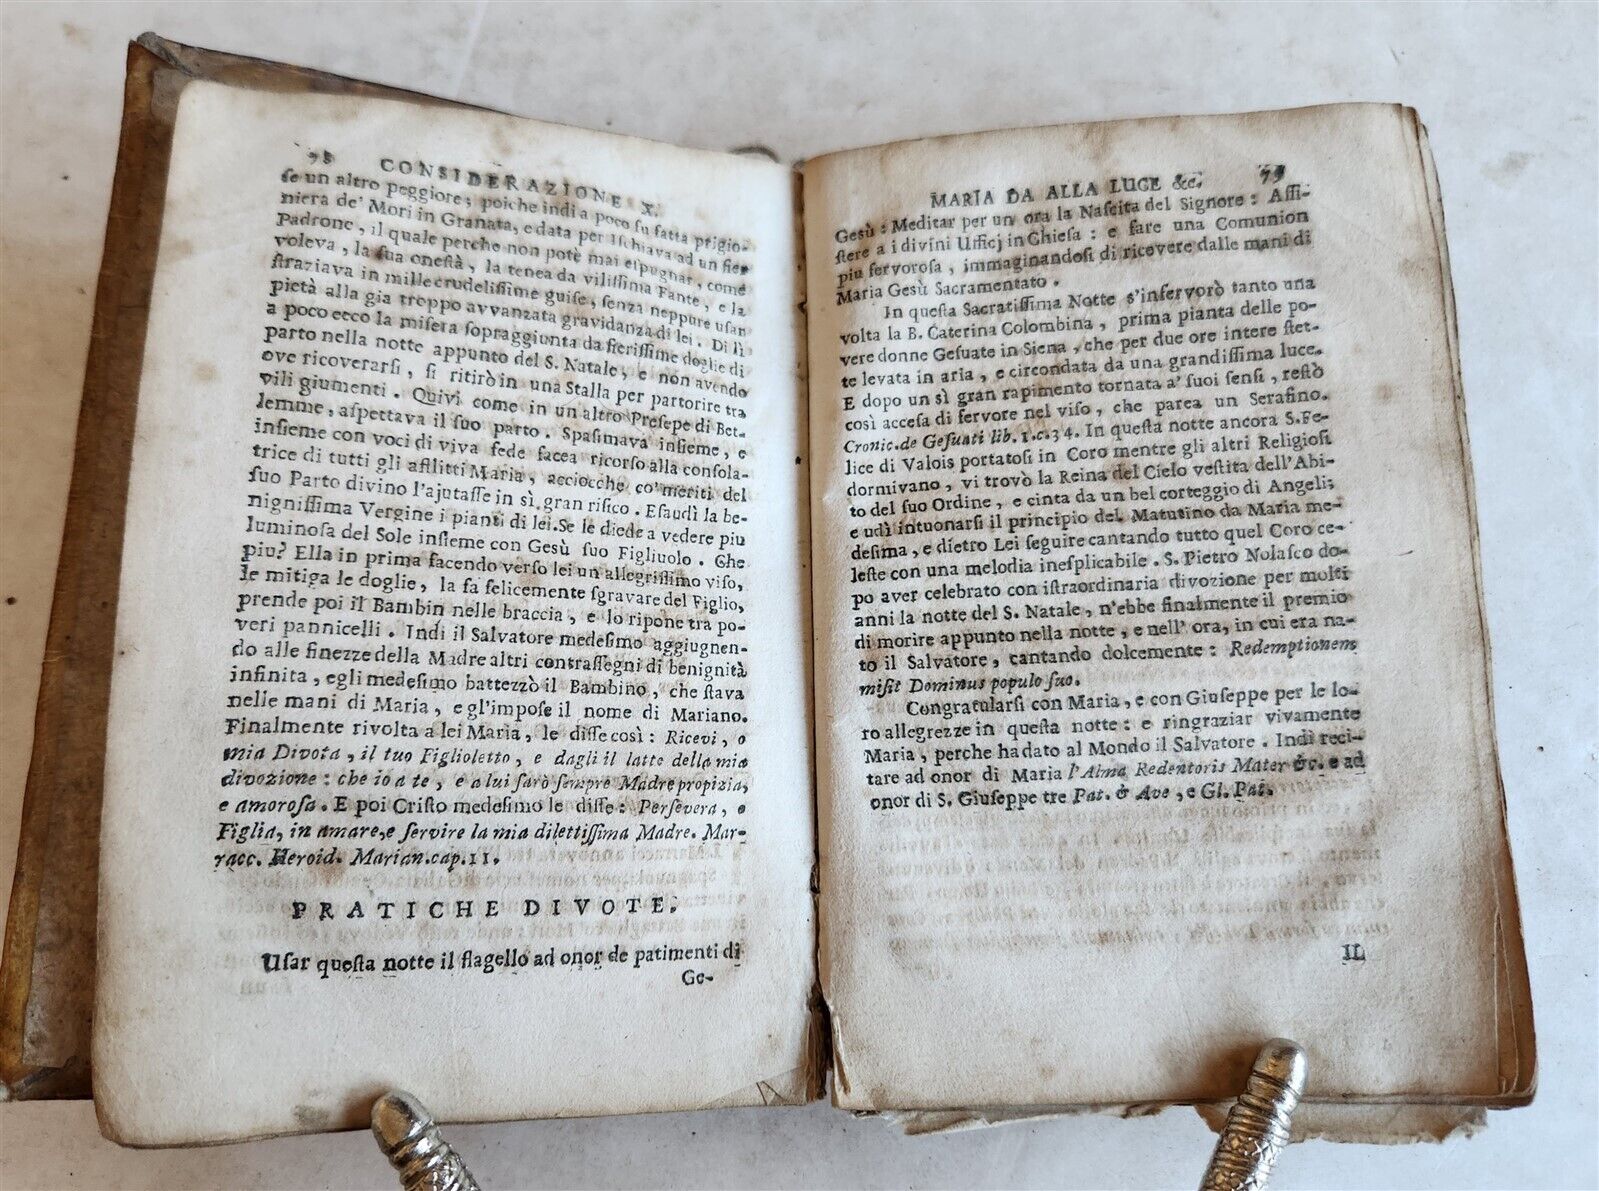 78 CONSIDERAZIONE X.
ſe un altro peggiore; poiche indi a poco fu fatta prigio-
niera de' Mori in Granata, e data per Iſchiava ad un fier
Padrone, il quale perche non potè mai eſpugnar, come
voleva, la ſua oneſtà, la tenea da viliſſima Fante, e la
ſtraziava in mille crudeliſſime guiſe, ſenza neppure uſar
pietà alla gia troppo avvanzata gravidanza di lei. Di lì
a poco ecco la miſera ſopraggiunta da fieriſſime doglie di
parto nella notte appunto del S. Natale, e non avendo
ove ricoverarſi, ſi ritirò in una Stalla per partorire tra
vili giumenti. Quivi come in un altro Preſepe di Bet-
lemme, aſpettava il ſuo parto. Spaſimava inſieme, e
inſieme con voci di viva fede facea ricorſo alla conſola-
trice di tutti gli afflitti Maria, acciocche co' meriti del
ſuo Parto divino l'ajutaſſe in sì gran riſico. Eſaudì la be-
nigniſſima Vergine i pianti di lei. Se le diede a vedere piu
luminoſa del Sole inſieme con Gesù ſuo Figliuolo. Che
piu? Ella in prima facendo verſo lei un allegriſſimo viſo,
le mitiga le doglie, la fa felicemente ſgravare del Figlio,
prende poi il Bambin nelle braccia, e lo ripone tra po-
veri pannicelli. Indi il Salvatore medeſimo aggiugnen-
do alle finezze della Madre altri contraſſegni di benignità
infinita, egli medeſimo battezzò il Bambino, che ſtava
nelle mani di Maria, e gl'impoſe il nome di Mariano.
Finalmente rivolta a lei Maria, le diſſe così: Ricevi, o
mia Divota, il tuo Figlioletto, e dagli il latte della mia
divozione: che io a te, e a lui ſarò ſempre Madre propizia,
e amoroſa. E poi Criſto medeſimo le diſſe: Perſevera, o
Figlia, in amare, e ſervire la mia dilettiſſima Madre. Mar-
racc. Heroid. Marian. cap. 11.
PRATICHE DIVOTE.
Uſar queſta notte il flagello ad onor de patimenti di
Ge-
MARIA DA ALLA LUCE &c. 79
Gesù: Meditar per un ora la Naſcita del Signore: Aſſi-
ſtere a i divini Ufficj in Chieſa: e fare una Comunion
piu fervoroſa, immaginandoſi di ricevere dalle mani di
Maria Gesù Sacramentato.
In queſta Sacratiſſima Notte s'infervorò tanto una
volta la B. Caterina Colombina, prima pianta delle po-
vere donne Geſuate in Siena, che per due ore intere ſtet-
te levata in aria, e circondata da una grandiſſima luce.
E dopo un sì gran rapimento tornata a' ſuoi ſenſi, reſtò
così acceſa di fervore nel viſo, che parea un Serafino.
Cronic. de Geſuati lib. 1. c. 34. In queſta notte ancora S. Fe-
lice di Valois portatoſi in Coro mentre gli altri Religioſi
dormivano, vi trovò la Reina del Cielo veſtita dell'Abi-
to del ſuo Ordine, e cinta da un bel corteggio di Angeli;
e udì intuonarſi il principio del Matutino da Maria me-
deſima, e dietro Lei ſeguire cantando tutto quel Coro ce-
leſte con una melodia ineſplicabile. S. Pietro Nolaſco do-
po aver celebrato con iſtraordinaria divozione per molti
anni la notte del S. Natale, n'ebbe finalmente il premio
di morire appunto nella notte, e nell' ora, in cui era na-
to il Salvatore, cantando dolcemente: Redemptionem
miſit Dominus populo ſuo.
Congratularſi con Maria, e con Giuſeppe per le lo-
ro allegrezze in queſta notte: e ringraziar vivamente
Maria, perche ha dato al Mondo il Salvatore. Indi reci-
tare ad onor di Maria l'Alma Redentoris Mater &c. e ad
onor di S. Giuſeppe tre Pat. & Ave, e Gl. Pat.
IL